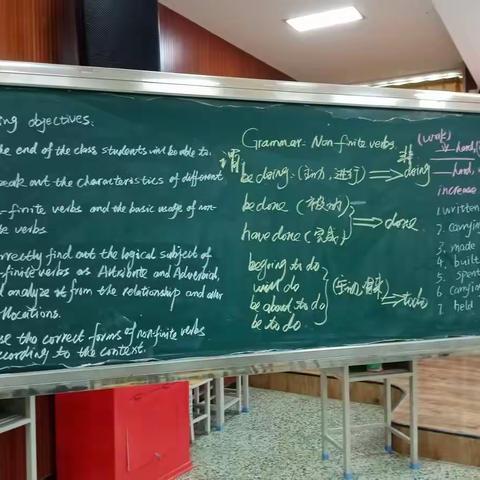 ing objectives.
he end of the class students will be able to:
eak out the characteristics of different
n-finite verbs and the basic usage of non-
te verbs
orrectly find out the logical subject of
finite verbs as Attribute and Adverbial,
d analyze it from the relationship and
llocations.
se the correct forms of non-finite verbs
ccording to the context.
Grammar: Non-finite verbs.
谓 非
be doing: (主动, 进行) ⇒ doing
be done (被动)
⇒ done
have done (完成)
be going to do
will do
be about to do
be to do
(主动, 将来) ⇒ to do
(work)
hard
hard
increase
1. written
2. carrying
3. made
4. built
5. spent
6. carrying
7. held